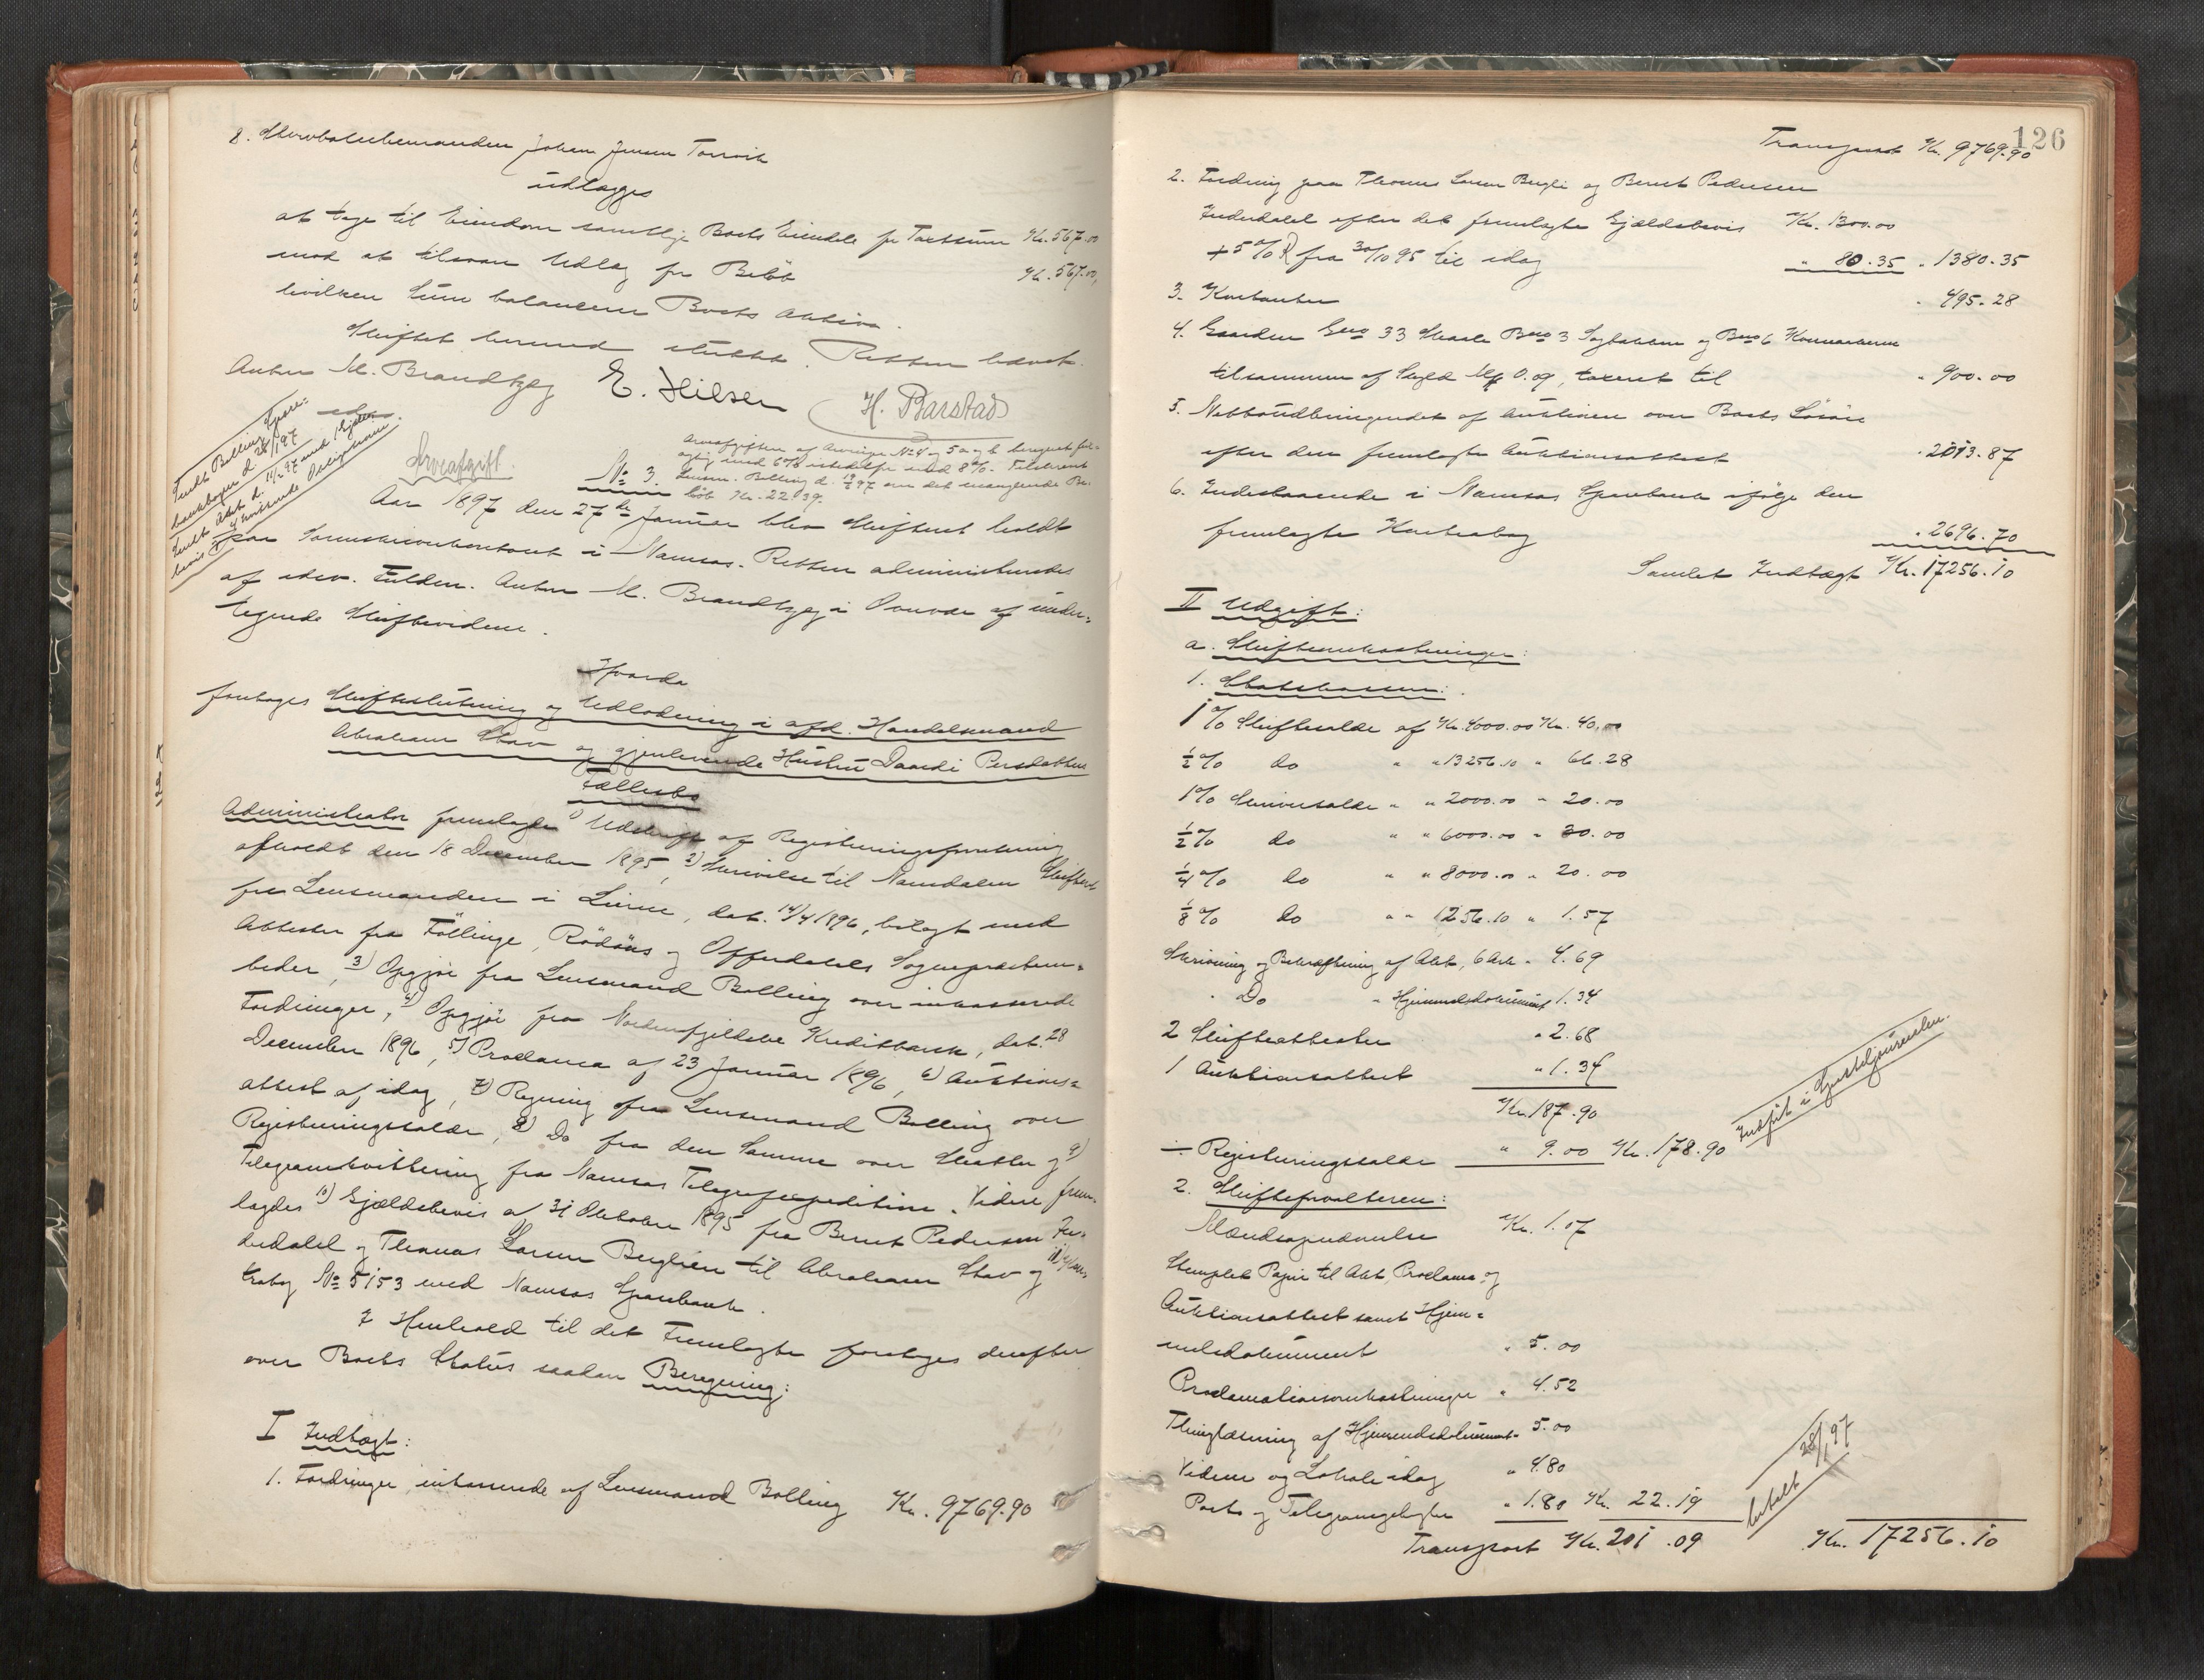 8. Storborerhemanden Johan Jensen Torsvik
udlægges
at tage til Eiendom samtlige Boets Eiendele for Taxtsum Kr. 567.00
mod at tilsvare Udlæg for Beløb Kr. 567.00,
hvilken Sum balancerer Boets Aktiva.
Skiftet hermed sluttet. Retten hævet.
Anton M. Brandtzæg E. Hilsen H. Barstad
edsv.
Indt. Bolling Spare-
bankbøger d. 28/1 97
Indt. Akt d. 11/2 97 med 1 Gjælds-
bevis
Arveafgift.
Arveafgiften af Arvinger No 4 og 5 a og b beregnet feil-
agtig med 6% istedetfor med 8%. Tilskrevet
Lensm. Bolling d. 19/2 97 om det manglende Be-
løb Kr. 22.39.
No 3.
Aar 1897 den 27de Januar blev Skifteret holdt
paa Sorenskriverkontoret i Namsos. Retten administreredes
af edsv. Fuldm. Anton M. Brandtzæg i Overvær af under-
tegnede Skiftevidner.
Hvorda
foretoges Skifteslutning og Udlodning i afd. Handelsmand
Abraham Stav og gjenlevende Hustru Daardi Persdatters
Fællesbo
Administrator fremlagde 1) Udskrift af Registreringsforretning
afholdt den 18 December 1895, 2) Skrivelse til Namdalens Skifteret
fra Lensmanden i Lierne, dat. 14/4 1896, bilagt med
Attester fra Föllinge, Rödöns og Offerdals Sogneprestem-
beder, 3) Opgjør fra Lensmand Bolling over inkasserede
Fordringer, 4) Opgjør fra Nordenfjeldske Kreditbank, dat. 28
December 1896, 5) Proclama af 23 Januar 1896, 6) Auktions-
attest af idag, 7) Regning fra Lensmand Bolling over
Registreringssalær, 8) Do fra den Samme over Skatter og 9)
Telegramkvittering fra Namsos Telegrafexpedition. Videre frem-
lagdes 10) Gjældsbevis af 31 Oktober 1895 fra Bernt Pedersen In-
derdalel og Thomas Larsen Berglien til Abraham Stav og 11) Kon-
trabog No 5153 med Namsos Sparebank.
I Henhold til det Fremlagte foretoges derefter
over Boets Status saadan Beregning:
I Indtægt:
1. Fordringer, inkasserede af Lensmand Bolling Kr. 9769.90
126
Transport Kr. 9769.90
2. Fordring paa Thomas Larsen Bergli og Bernt Pedersen
Inderdalel efter det fremlagte Gjældsbevis Kr. 1300.00
+ 5% R fra 30/10 95 til idag " 80.35 " 1380.35
3. Kontanter " 495.28
4. Gaarden Gno 33 Skaale Bno 3 og Bno 6
tilsammen af Skyld Mk 0.09, taxeret til " 900.00
5. Nettoudbringendet af Auktionen over Boets Løsøre
efter den fremlagte Auktionsattest " 2013.87
6. Indestaaende i Namsos Sparebank ifølge den
fremlagte Kontrabog " 2696.70
Samlet Indtægt Kr. 17256.10
II Udgift:
a. Skifteomkostninger:
1. Statskassen:
1% Skiftesalær af Kr. 4000.00 Kr. 40.00
1/2% do " " 13256.10 " 66.28
1% Skriversalær " " 2000.00 " 20.00
1/2% do " " 6000.00 " 30.00
1/4% do " " 8000.00 " 20.00
1/8% do " " 1256.10 " 1.57
Skrivning og Bekræftning af Akt, 6 Ark " 4.69
" Do " Hjemmelsdokument 1.34
2 Skifteattester " 2.68
1 Auktionsattest " 1.34
Kr. 187.90
÷ Registreringssalær " 9.00 Kr. 178.90
Indført i Sporteljournalen.
2. Skifteforvalteren:
Mændsopnævnelse Kr. 1.07
Stemplet Papir til Akt, Proclama og
Auktionsattest samt Hjem-
melsdokument " 5.00
Proclamationsomkostninger " 4.52
Thinglæsning af Hjemmelsdokument " 5.00
Vidner og Lokale idag " 4.80
Porto og Telegramgebyr " 1.80 Kr. 22.19
betalt 28/1 97
Transport Kr. 201.09 Kr. 17256.10